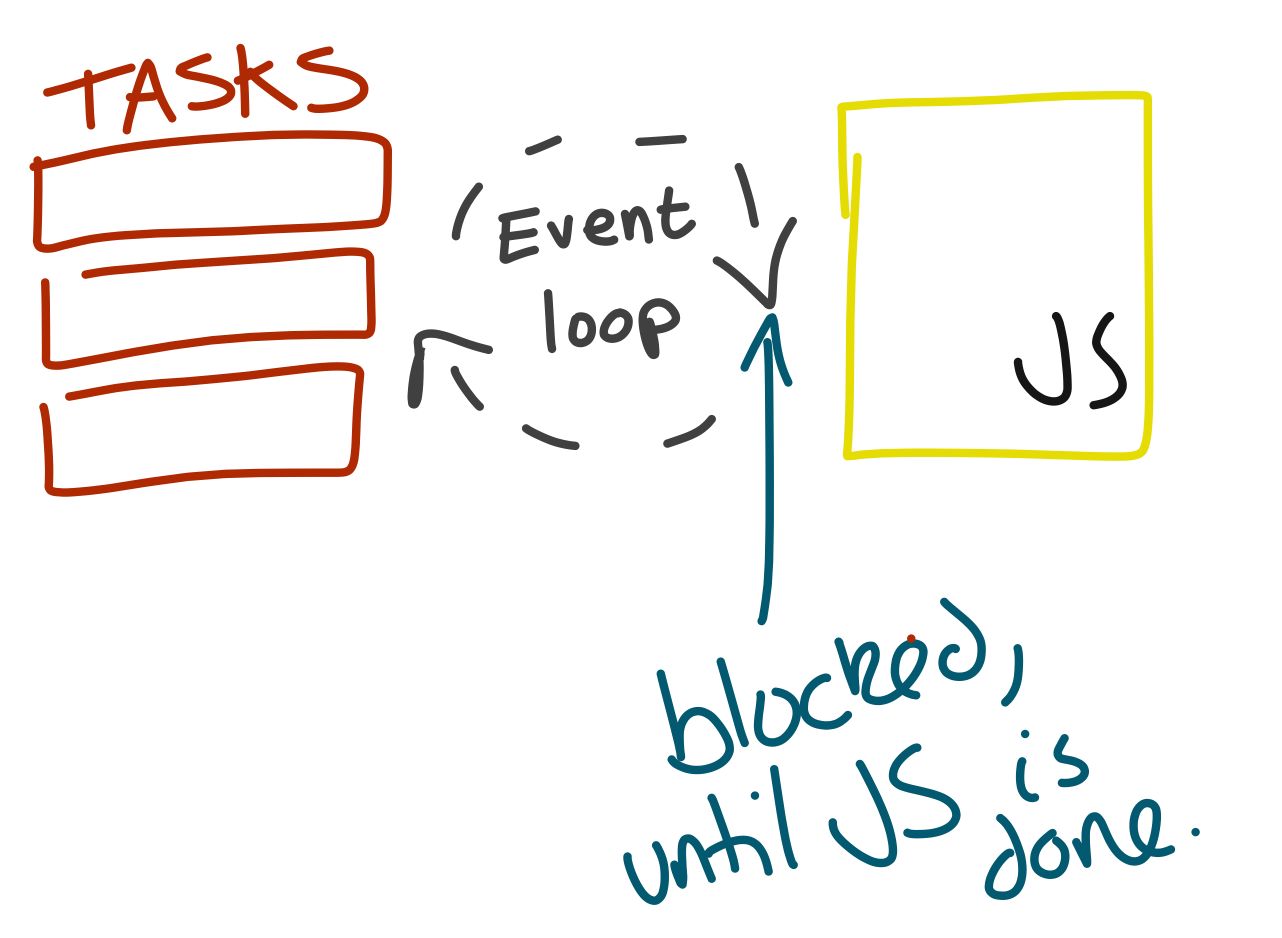 TASKS
Event
loop
JS
blocked,
until JS is
done.